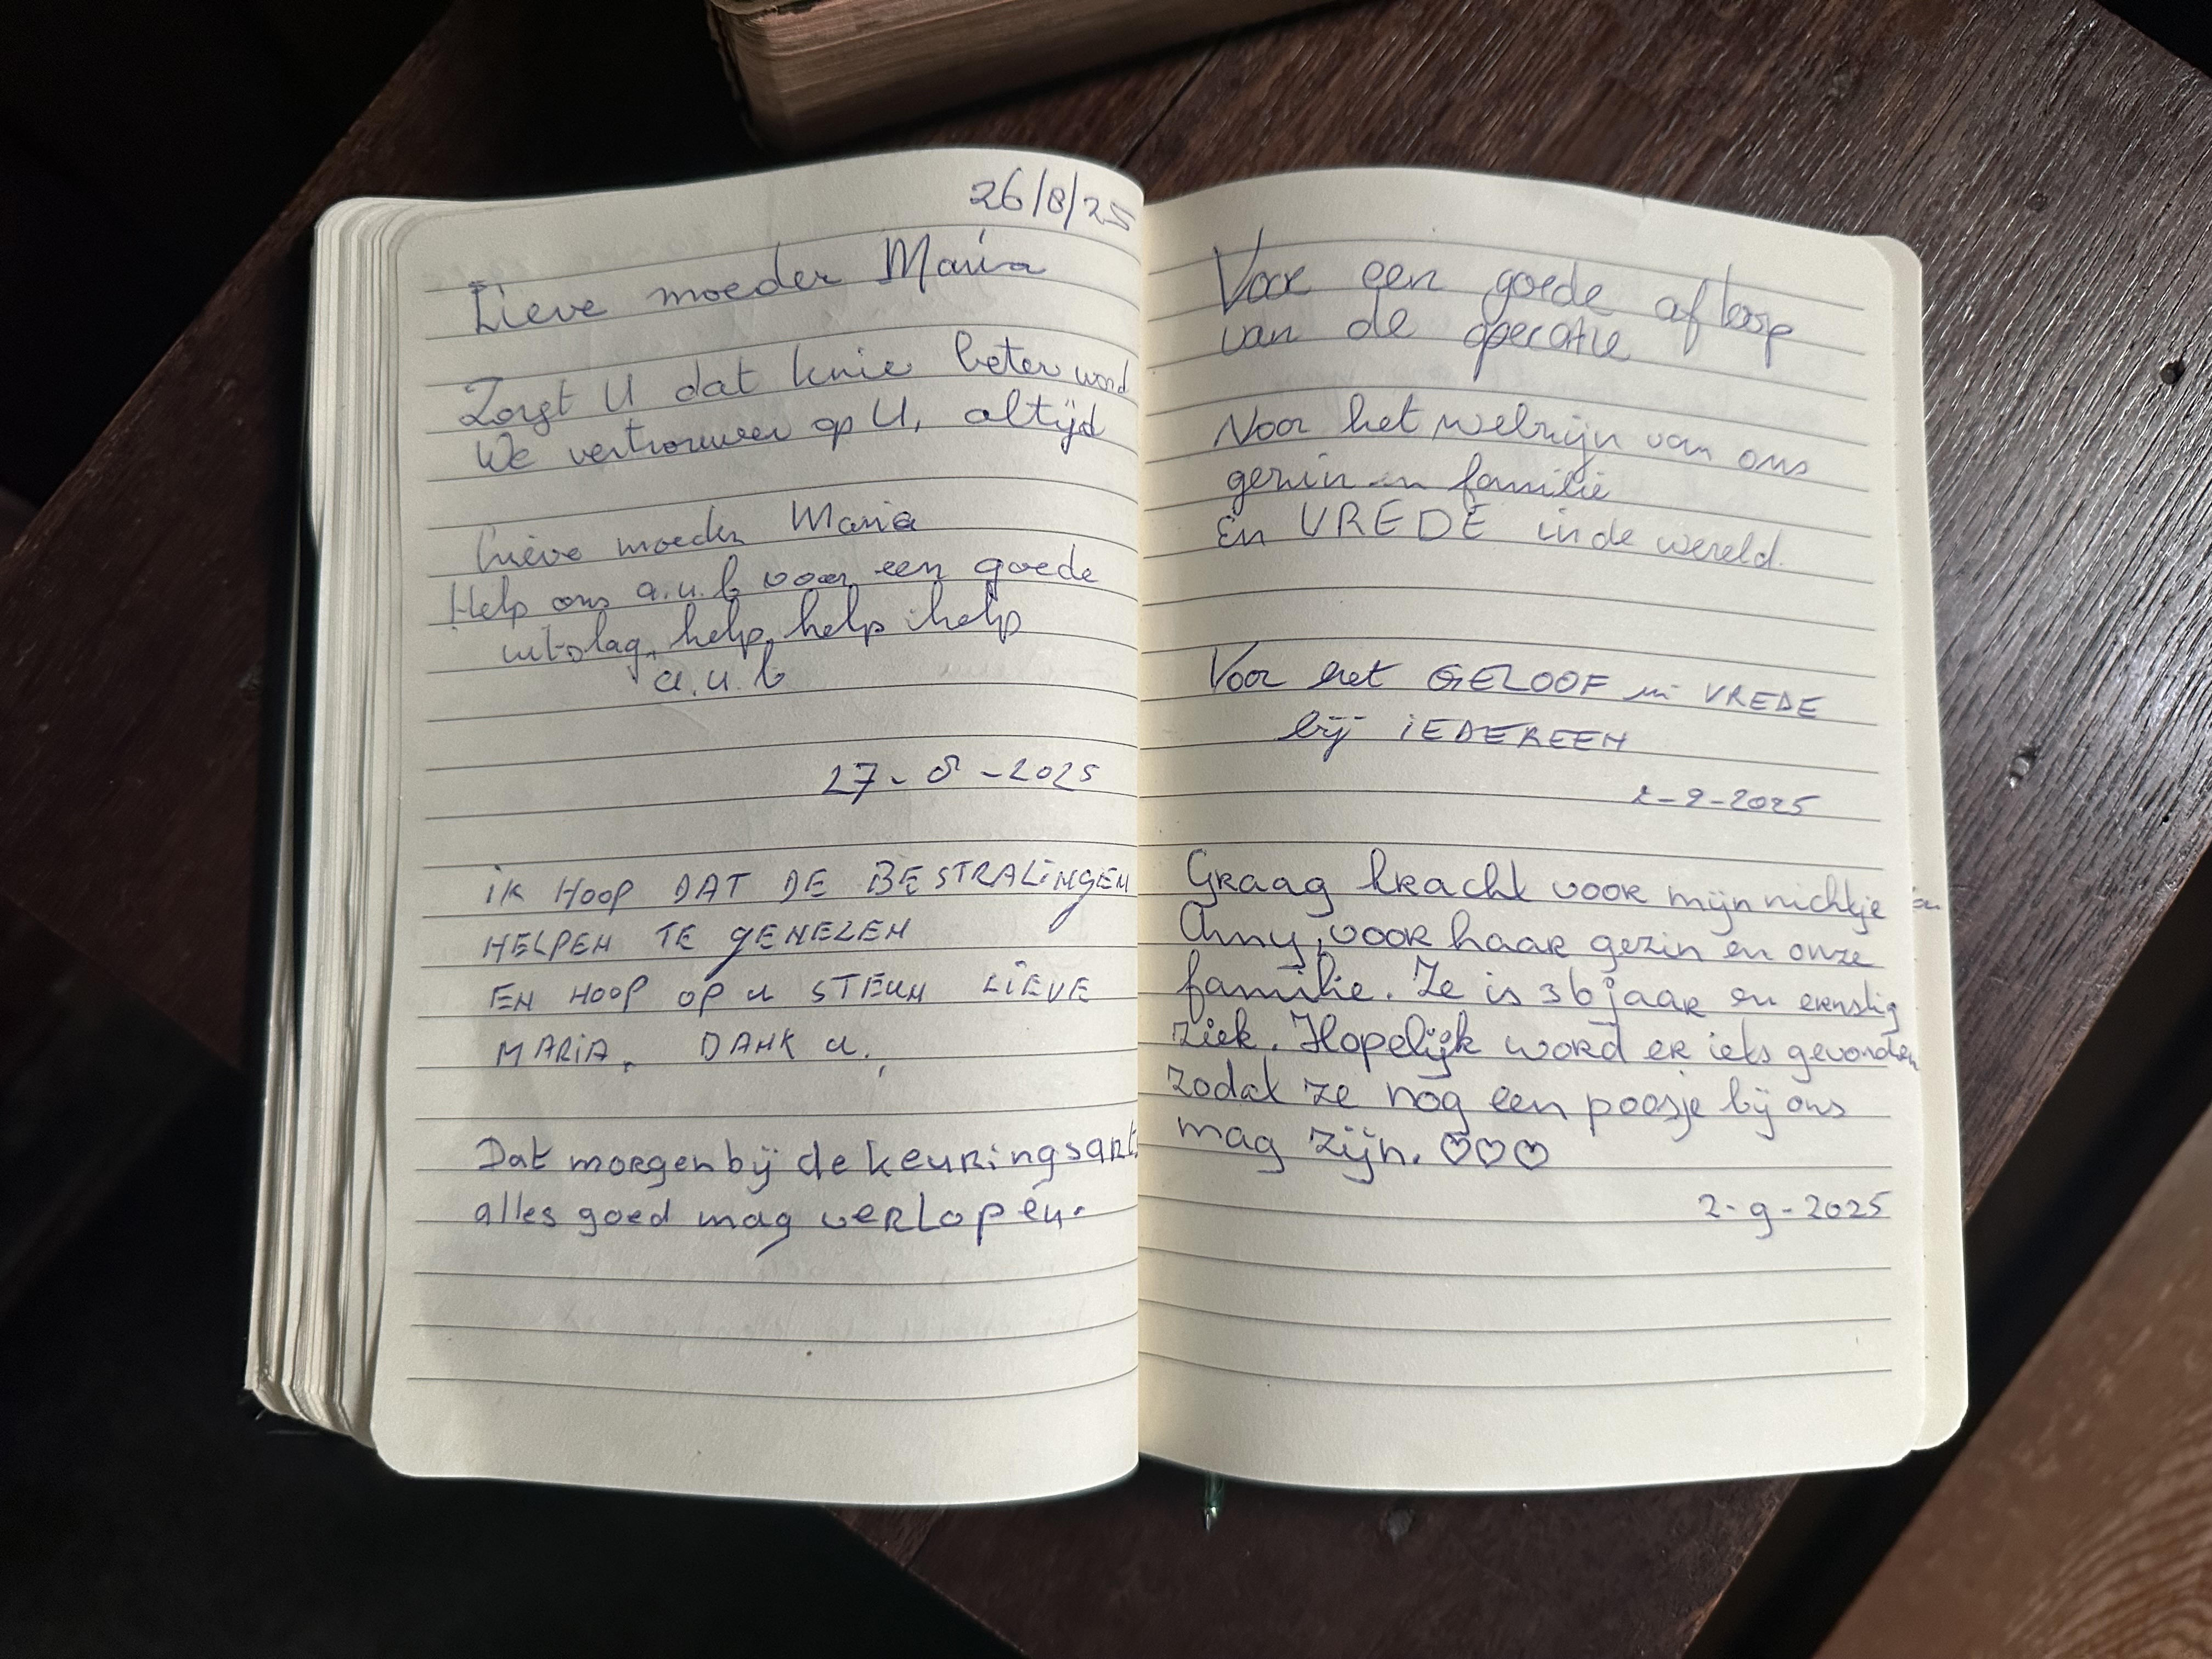 26/8/25
Lieve moeder Maria
Zorgt U dat knie beter word
We vertrouwen op U, altijd
Lieve moeder Maria
Help ons a.u.b voor een goede
uitslag, help, help help
a.u.b
27-8-2025
iK HOOP DAT DE BESTRALiNGEN
HELPEN TE GENEZEN
EN HOOP OP U STEUN LiEVE
MARiA. DANK U.
Dat morgen bij de keuringsarts
alles goed mag verlopen.
Voor een goede afloop
van de operatie
Voor het welzijn van ons
gezin en familie
En VREDE in de wereld.
Voor het GELOOF in VREDE
bij iEDEREEN
2-9-2025
Graag kracht voor mijn nichtje en
Anny, voor haar gezin en onze
familie. Ze is 36 jaar en ernstig
ziek. Hopelijk word er iets gevonden
zodat ze nog een poosje bij ons
mag zijn. ♡♡♡
2-9-2025